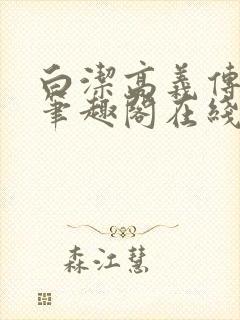 白潔高義傳
筆趣閣在綫
森江慧